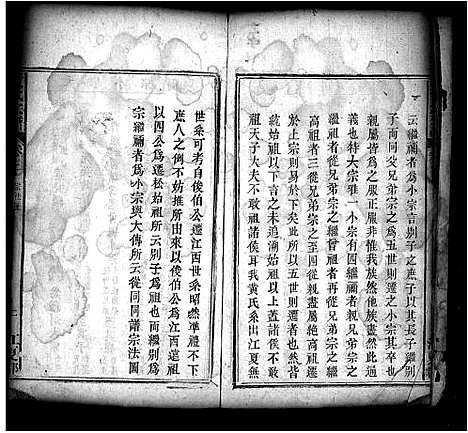 云繼禰者爲小宗言別子之庶子以其長子繼別
子而同父兄弟宗之爲五世則遷之小宗其卒也
親屬皆爲之服正服非惟我族然他族盡然此
義也特大宗惟一小宗有四繼禰者親兄弟宗之
繼祖者從兄弟宗之繼曾祖者再從兄弟宗之繼
高祖者三從兄弟宗之至四從親盡屬絕高祖
於上宗則易於下矣此所以五世則遷者也然皆
就始祖以下言之未追溯始祖以上蓋諸侯不敢
祖天子大夫不敢祖諸侯耳我黃氏系出江夏無
世系可考自後伯公遷江西世系昭然準禮不下
庶人之例不妨推所由來以後伯公爲江西遷祖
以四公爲遷松始祖所云別子爲祖也而繼別爲
宗繼禰者爲小宗與大傳所云從同同譜宗法圖